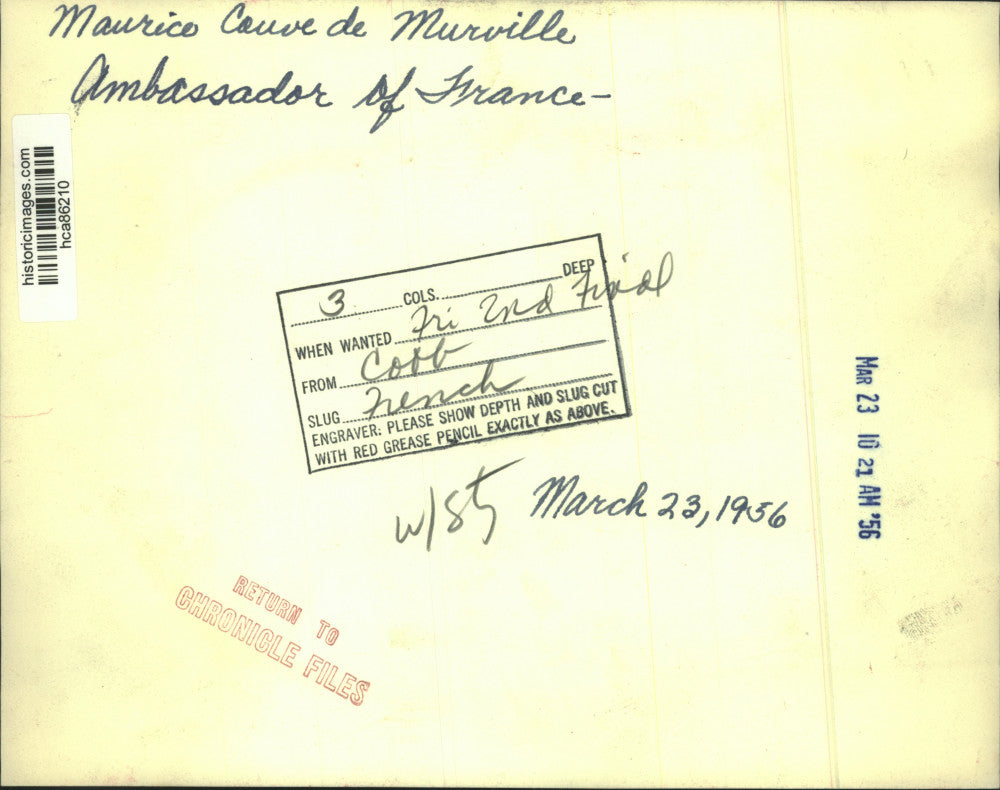 Maurice Couve de Murville
Ambassador of France-
historicimages.com
hca86210
3 COLS. DEEP
WHEN WANTED Fri 2nd Final
FROM Cobb
SLUG French
ENGRAVER: PLEASE SHOW DEPTH AND SLUG CUT
WITH RED GREASE PENCIL EXACTLY AS ABOVE.
MAR 23 10 21 AM '56
w/sty
March 23, 1956
RETURN TO
CHRONICLE FILES